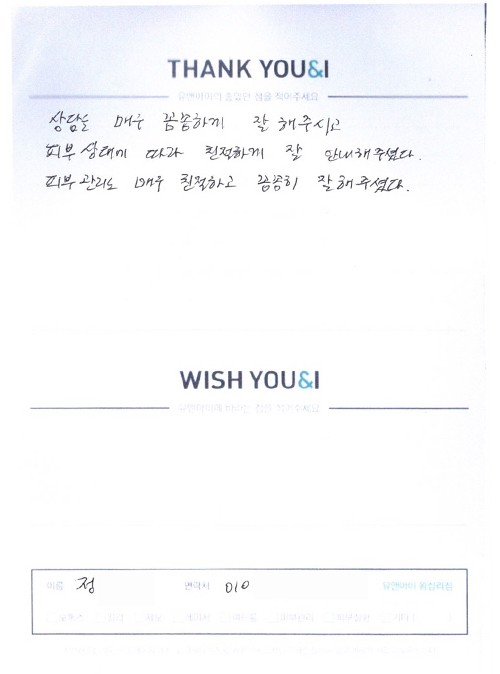 THANK YOU&I
유앤아이의 좋았던 점을 적어주세요
상담을 매우 꼼꼼하게 잘 해주시고
피부상태에 따라 친절하게 잘 안내해주셨다.
피부관리도 매우 친절하고 꼼꼼히 잘해주셨다.
WISH YOU&I
유앤아이에 바라는 점을 적어주세요
이름 정 연락처 010 유앤아이 왕십리점